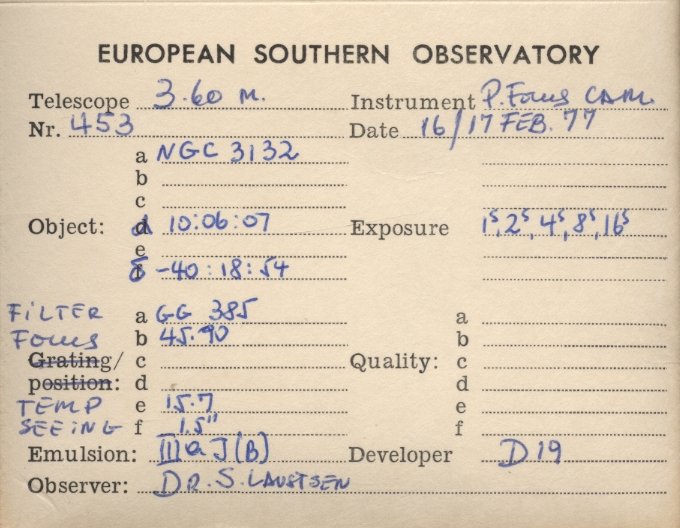 EUROPEAN SOUTHERN OBSERVATORY
Telescope 3.60 M. Instrument P. Focus CAM.
Nr. 453 Date 16/17 FEB. 77
a NGC 3132
b
c
Object: α 10:06:07 Exposure 1ˢ, 2ˢ, 4ˢ, 8ˢ, 16ˢ
e
δ -40:18:54
FILTER a GG 385 a
Focus b 45.90 b
Grating/ c Quality: c
position: d d
TEMP e 15.7 e
SEEING f 1.5" f
Emulsion: IIIa J (B) Developer D19
Observer: DR. S. LAUSTSEN